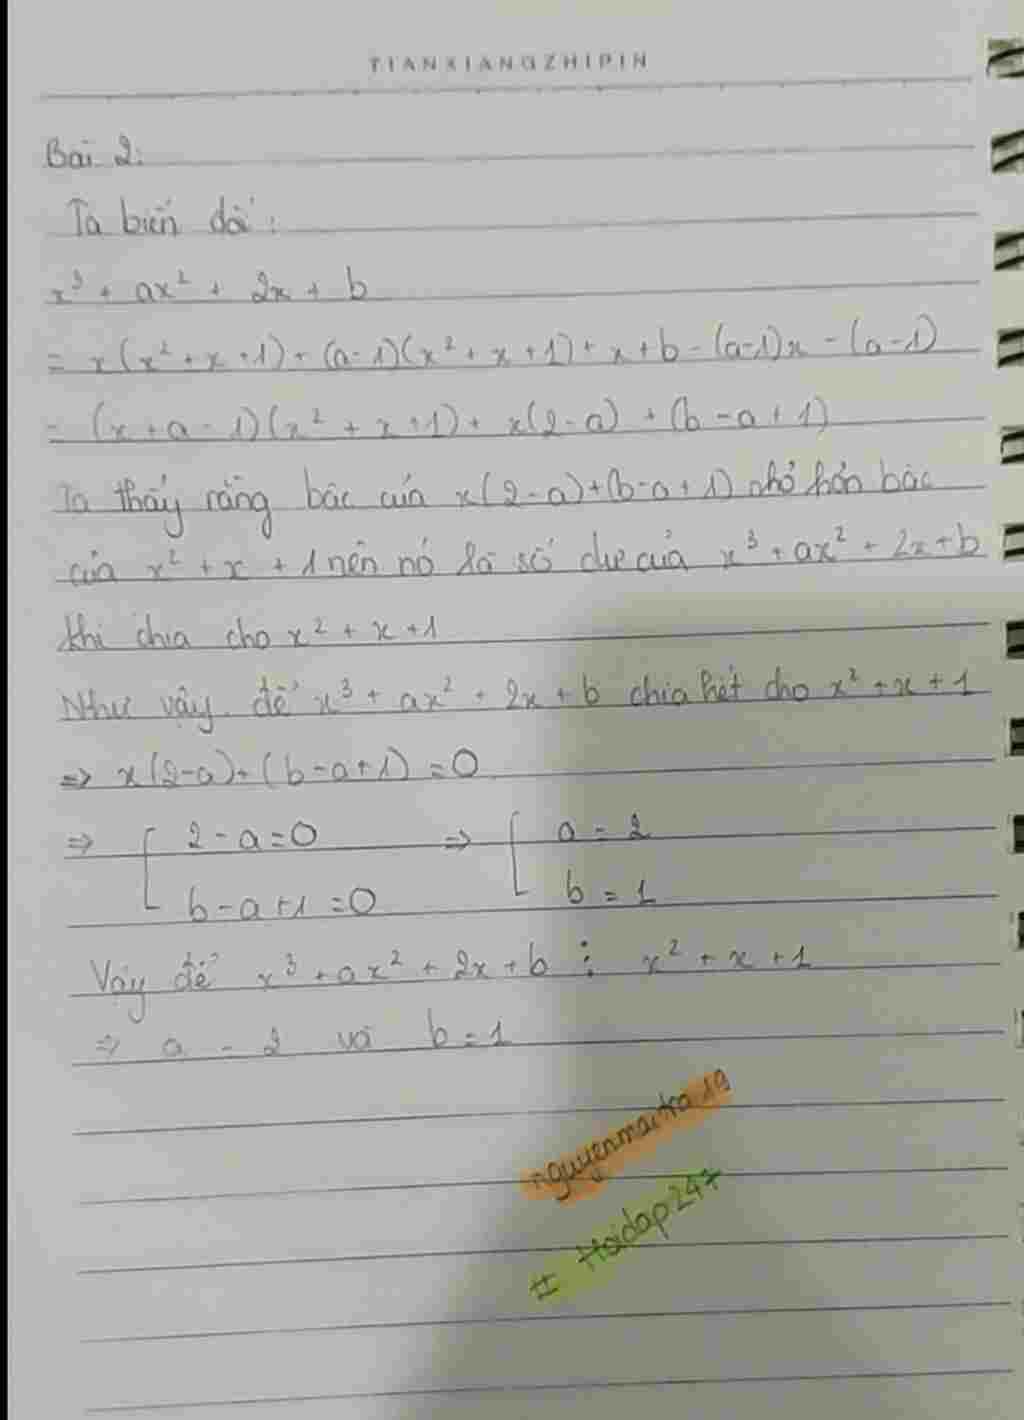 TIANXIANGZHIPIN
Bài 2:
Ta biến đổi:
x³ + ax² + 2x + b
= x(x² + x + 1) + (a-1)(x² + x + 1) + x + b - (a-1)x - (a-1)
= (x + a - 1)(x² + x + 1) + x(2-a) + (b - a + 1)
Ta thấy rằng bậc của x(2-a)+(b-a+1) nhỏ hơn bậc
của x² + x + 1 nên nó là số dư của x³ + ax² + 2x + b
khi chia cho x² + x + 1
Như vậy để x³ + ax² + 2x + b chia hết cho x² + x + 1
=> x(2-a) + (b-a+1) = 0
=> [ 2 - a = 0 => [ a = 2
b - a + 1 = 0 b = 1
Vậy để x³ + ax² + 2x + b ⋮ x² + x + 1
=> a = 2 và b = 1
nguyenmaitra19
# Hoidap247